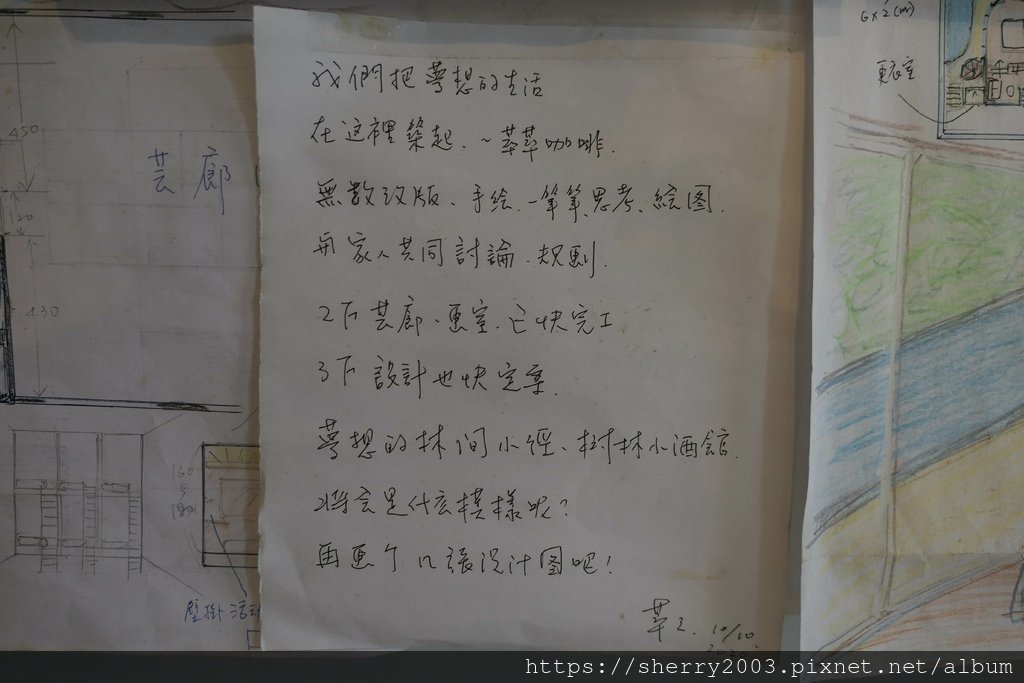 450
芸廊
120
430
160
壁掛活動
我們把夢想的生活
在这裡築起、~莘莘咖啡.
無数改版、手绘、一筆筆思考、繪图.
再家人共同討論、規劃.
2下芸廊、画室、已快完工
3下設計也快定案.
夢想的林间小徑、樹林小酒館.
将会是什么模樣呢?
再画个几張设计图吧!
10/10.
6x2(m)
更衣室
https://sherry2003.pixnet.net/album